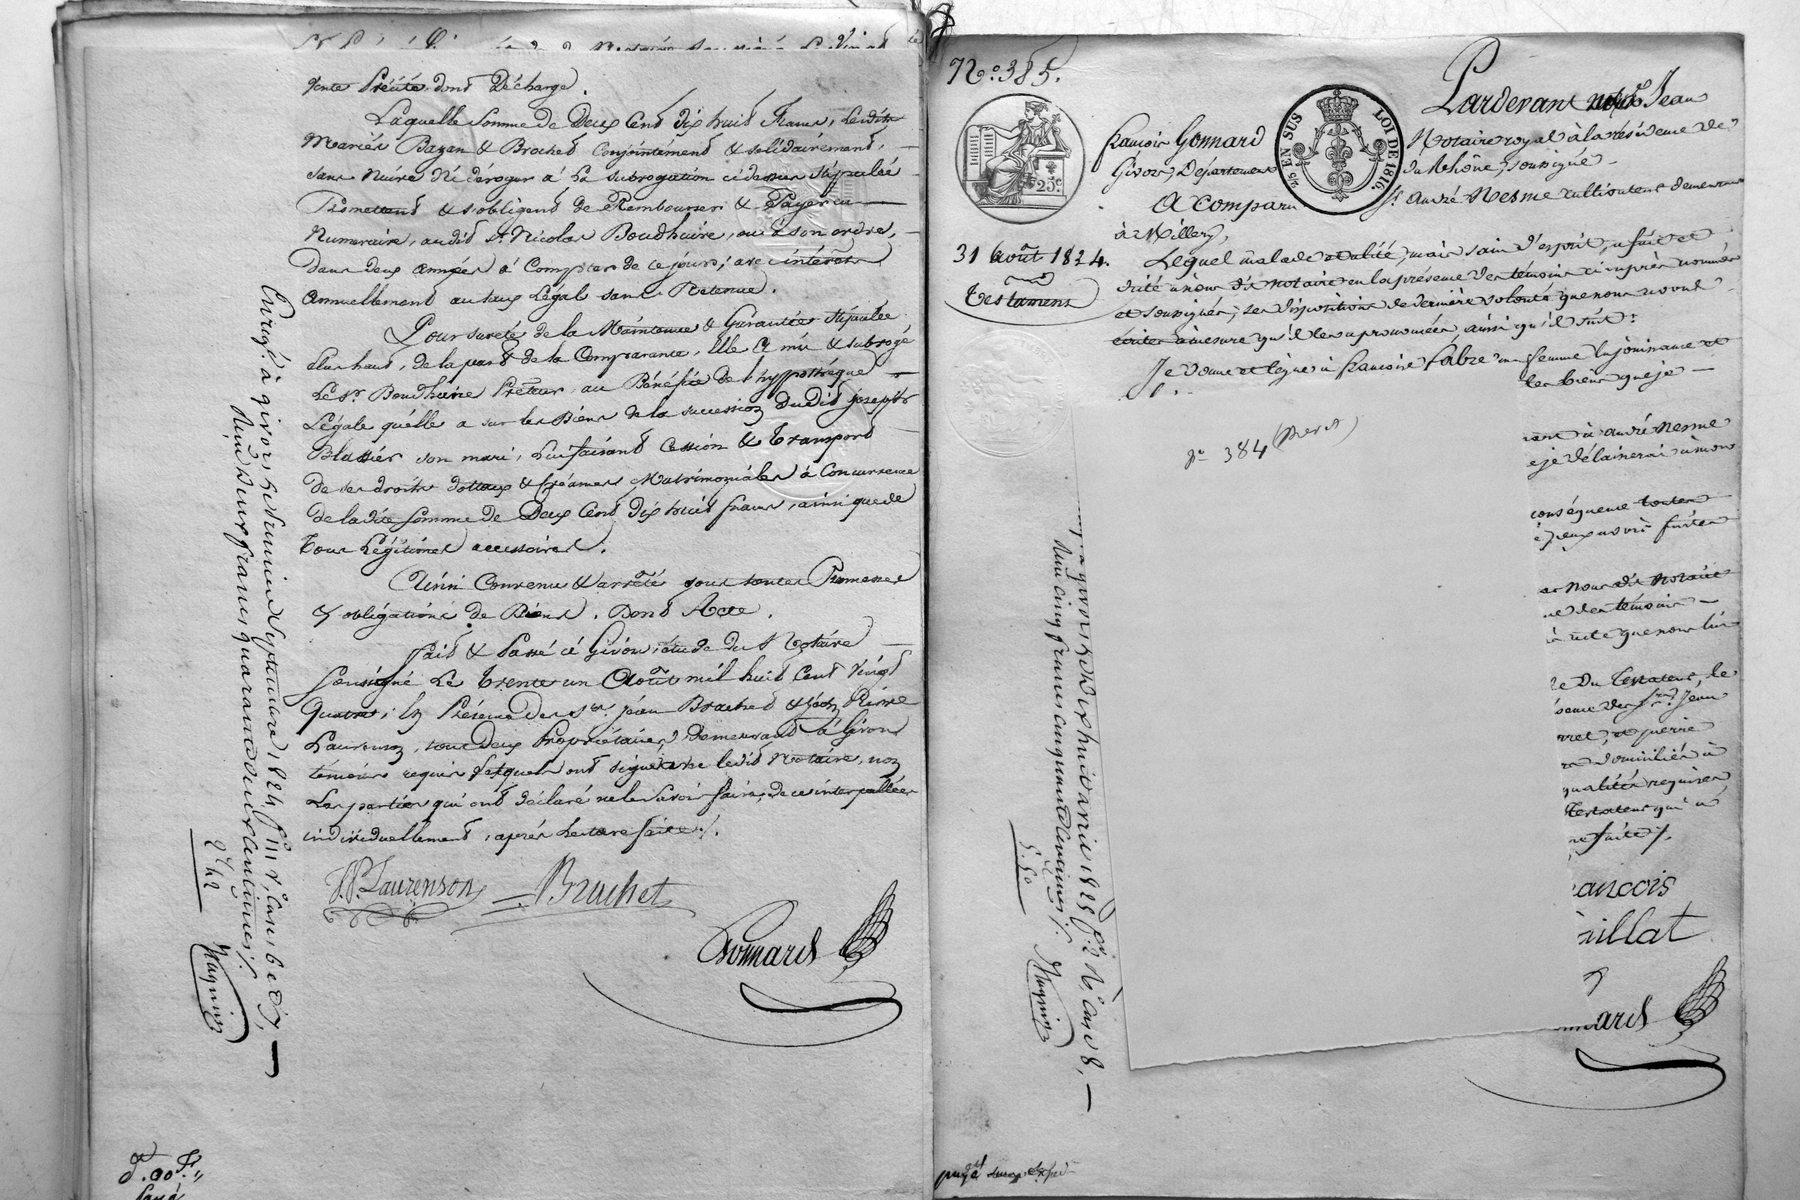 vente précité dont décharge.
Laquelle somme de Deux Cent dix huit francs, lesdits
Mariés Bazan & Brochet conjointement & solidairement,
sans nuire ni déroger à la subrogation ci dessus stipulée
Promettent & s'obligent de Rembourser & Payer en
Numeraire, audit sr. Nicolas Boudhuire, ou à son ordre,
dans deux années à Compter de ce jour, avec intérêts
annuellement au taux Légal sans Retenue.
Pour sureté de la Maintenue & Garantie stipulée
plus haut, de la part de la Comparante, Elle a mis & subrogé
Le Sr. Boudhuire Prêteur au Bénéfice de l'hyppothèque
Légale qu'elle a sur les Biens de la succession dudit joseph
Blassier son mari, Lui faisant Cession & Transport
de ses droits dotaux & Créances Matrimoniales à Concurrence
de ladite somme de Deux Cent dix huit francs, ainsi que de
tous Légitimes accessoires.
Ainsi Convenu & arrêté sous toutes Promesses
& obligations de Biens. Dont Acte.
Fait & Passé à Givors, étude du st Notaire
soussigné Le trente un Août mil huit Cent vingt
Quatre; En Présence des srs. jean Brachet & jean Pierre
Laurenson, tous deux Propriétaires, demeurant à Givors
témoins requis Lesquels ont signé avec ledit Notaire, non
Les parties qui ont déclaré ne le savoir faire, de ce interpellées
individuellement, après Lecture faite ./.
J.P. Laurenson Brachet
Gonnard
Enrgé. à givors le huit Septembre 1824, f° 111 r° Cases 6 et 7,
Reçu Deux francs quarante deux centimes
2 f 42
Magnin
N.° 385.
25c
2/5 EN SUS
LOI DE 1816.
Pardevant Me Jean
françois Gonnard Notaire royal à la résidence de
Givors, Département du Rhône, soussigné
A comparu Sr. André Nesme cultivateur demeurant
à Millery,
31 Août 1824.
Testament
Lequel malade alité, mais sain d'esprit, a fait et
dicté à nous dit notaire en la présence des témoins ci après nommés
et soussignés, ses dispositions de dernière volonté que nous avons
écrites à mesure qu'il les a prononcées ainsi qu'il suit:
Je donne et lègue à francoise Fabre ma femme la jouissance et
les biens que je
N° 384 (perdu)
à andré Nesme
e je délaisserai à mon
conséquence toutes
e je peux avoir faites
ar Nous dit Notaire
ce des témoins
a dicté que nous lui
le Du testateur, le
sence des Srs. Jean
rret, et pierre
domiciliés à
qualités requises
testateur qui a
re faite ./.
ançois
aillat
nnard
givors le Dix huit avril 1825 f° 2 V° Case 8,
Reçu Cinq francs cinquante centimes
5. 50
Magnin